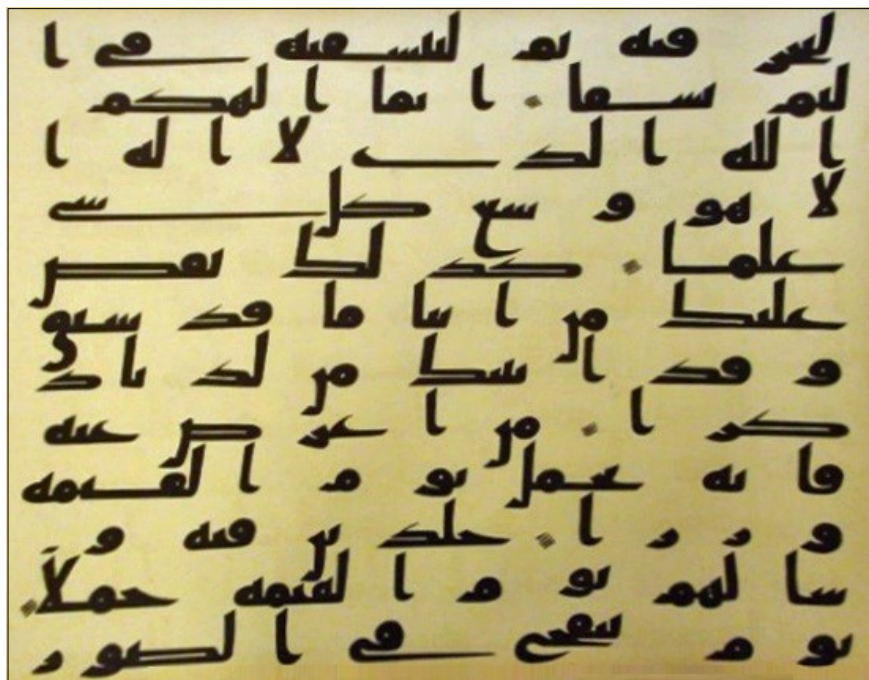 لنحرقنه ثم لننسفنه في ا
ليم نسفا ۰ انما الهكم
الله الذي لا اله ا
لا هو وسع كل شي
علما ۰ كذلك نقص
عليك من انبا ما قد سبق
وقد اتينك من لدنا ذ
كرا ۰ من اعرض عنه
فانه يحمل يوم القيمه
وزرا ۰ خلدين فيه و
سا لهم يوم القيمه حملا ۰
يوم ينفخ في الصور